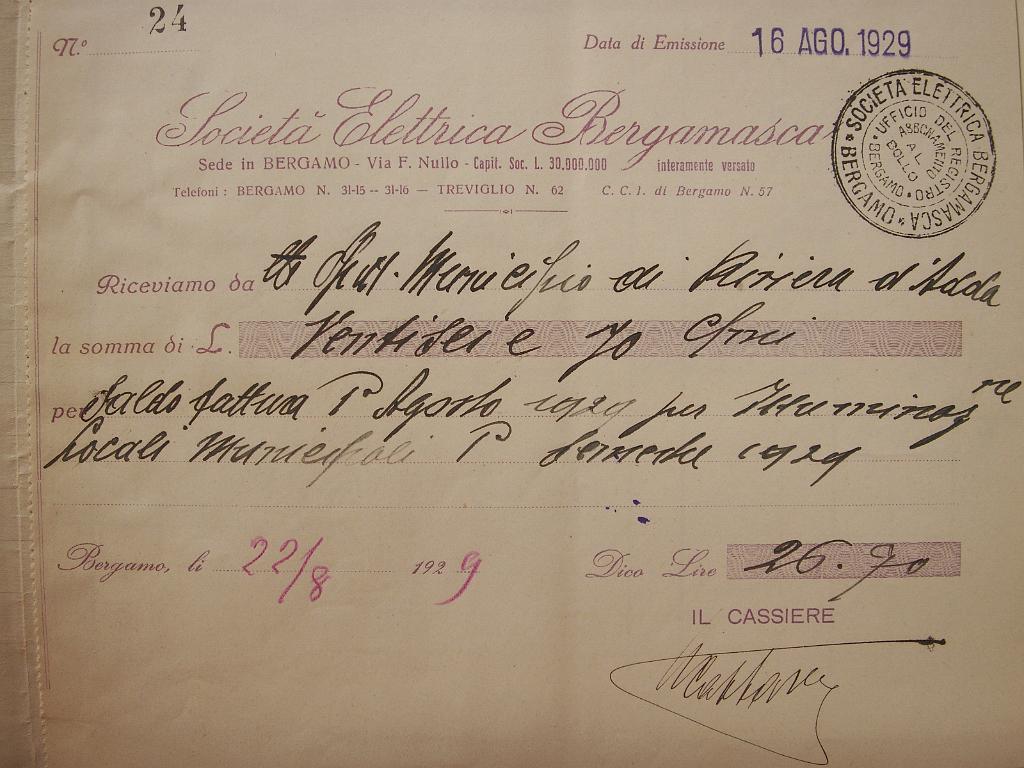 N.° 24
Data di Emissione 16 AGO. 1929
Società Elettrica Bergamasca
Sede in BERGAMO - Via F. Nullo - Capit. Soc. L. 30.000.000 interamente versato
Telefoni : BERGAMO N. 31-15 -- 31-16 — TREVIGLIO N. 62 C. C. I. di Bergamo N. 57
SOCIETÀ ELETTRICA BERGAMASCA * BERGAMO *
UFFICIO DEL REGISTRO * BERGAMO *
ABBONAMENTO
AL
BOLLO
Riceviamo da Municipio di Riviera d'Adda
la somma di L. Ventisei e 70 Cmi
per Saldo fattura 1° Agosto 1929 per Illuminaz ne
Locali Municipali 1° Semestre 1929
Bergamo, li 22/8 1929
Dico Lire 26.70
IL CASSIERE